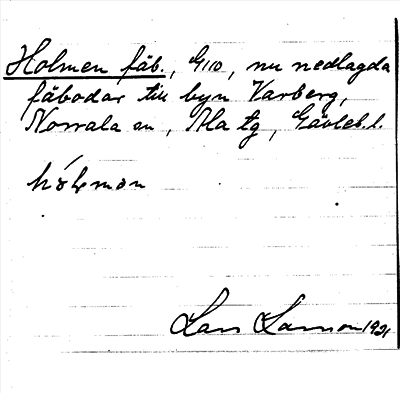 Holmen fäb., G110, nu nedlagda
fäbodar till byn Varberg,
Norrala sn, Ala tg, Gävleb. l.
Lars Larsson 1921